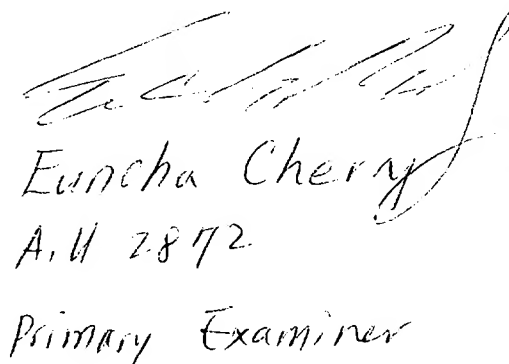 Euncha Cherry
A.U 2872
Primary Examiner